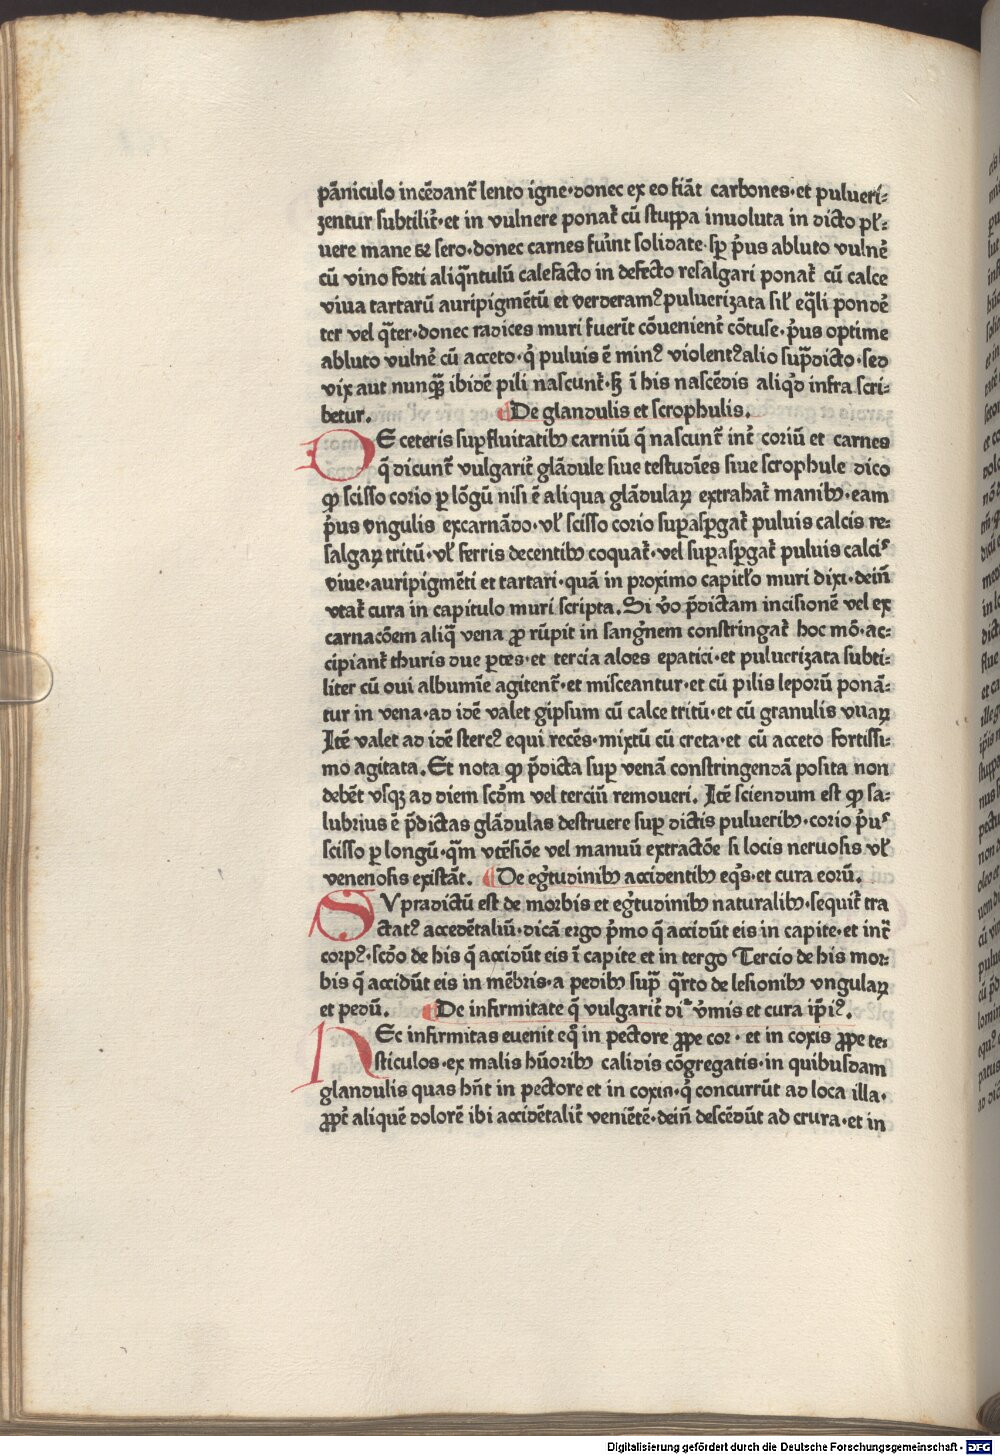 pãniculo incẽdant᷑ lento igne·donec ex eo fiãt carbones·et pulueri-
zentur subtilit᷑·et in vulnere ponat᷑ cũ stuppa inuoluta in dicto pl̓-
uere mane et sero·donec carnes fu̓int solidate·sꝑ p̓us abluto vulne᷑
cũ vino forti aliq̃ntulũ calefacto in defecto resalgari ponat᷑ cũ calce
viua tartarũ auripigmẽtũ et verderamꝰ puluerizata sil̓ eq̃li ponde᷑
ter vel q̃ter·donec radices muri fuerĩt cõuenient᷑ cõtuse·p̓us optime
abluto vulne᷑ cũ acceto·q̓ puluis ẽ minꝰ violentꝰ alio sup̃dicto·sed
vix aut nunqᷓ ibidẽ pili nascunt᷑·sꝫ ĩ his nascẽdis aliq̓d infra scri-
betur. De glandulis et scrophulis.
DE ceteris suꝑfluitatibꝰ carniũ q̃ nascunt᷑ int᷑ coriũ et carnes
q̃ dicunt᷑ vulgarit᷑ glãdule siue testudĩes siue scrophule dico
ꝙ scisso corio ꝑ lõgũ nisi ẽ aliqua glãdulaꝝ extrahat᷑ manibꝰ·eam
p̓us vngulis excarnãdo·vl̓ scisso corio suꝑasꝑgat᷑ puluis calcis re-
salgaꝝ tritũ·vl̓ ferris decentibꝰ coquat᷑·vel suꝑasꝑgat᷑ puluis calcis
viue·auripigmẽti et tartari·quã in proximo capitl̓o muri dixi·deiñ
vtat᷑ cura in capitulo muri scripta. Si v̓o p̃dictam incisionẽ vel ex
carnacõem aliq̃ vena ꝓrũpit in sang̓nem constringat᷑ hoc mõ·ac-
cipiant᷑ thuris due ꝑtes·et tercia aloes epatici·et puluerizata subti-
liter cũ oui albumĩe agitent᷑·et misceantur·et cũ pilis leporũ ponã-
tur in vena·ad idẽ valet gipsum cũ calce tritũ·et cũ granulis vuaꝝ
Itẽ valet ad idẽ stercꝰ equi recẽs·mixtũ cũ creta·et cũ acceto fortissi-
mo agitata. Et nota ꝙ p̃dicta suꝑ venã constringendã posita non
debẽt vsqꝫ ad diem scdm̃ vel terciũ remoueri. Itẽ sciendum est ꝙ sa-
lubrius ẽ p̃dictas glãdulas destruere suꝑ dictis pulueribꝰ·corio p̓us
scisso ꝑ longũ·q̃m vtẽsiõe vel manuũ extractõe si locis neruosis vl̓
venenosis existãt. De eg̓tudinibꝰ accidentibꝰ eq̓s·et cura eorũ.
SVpradictũ est de morbis et eg̓tudinibꝰ naturalibꝰ·sequit᷑ tra
ctatꝰ accedẽtaliũ·dicã ergo p̓mo q̃ accidũt eis in capite·et int᷑
corpꝰ·scdõ de his q̃ accidũt eis ĩ capite et in tergo Tercio de his mor-
bis q̃ accidũt eis in mẽbris·a pedibꝰ sup̃ q̃rto de lesionibꝰ vngulaꝝ
et pedũ. De infirmitate q̃ vulgarit᷑ di᷑ v̓mis et cura ip̃iꝰ.
HEc infirmitas euenit eq̃ in pectore ꝓpe cor·et in coxis ꝓpe te-
sticulos·ex malis hũoribꝰ calidis cõgregatis·in quibusdam
glandulis quas hñt in pectore et in coxis·q̓ concurrũt ad loca illa·
ꝓpt᷑ aliquẽ dolorẽ ibi accidẽtalit᷑ veniẽtẽ·deiñ descẽdũt ad crura·et in
Digitalisierung gefördert durch die Deutsche Forschungsgemeinschaft - DFG